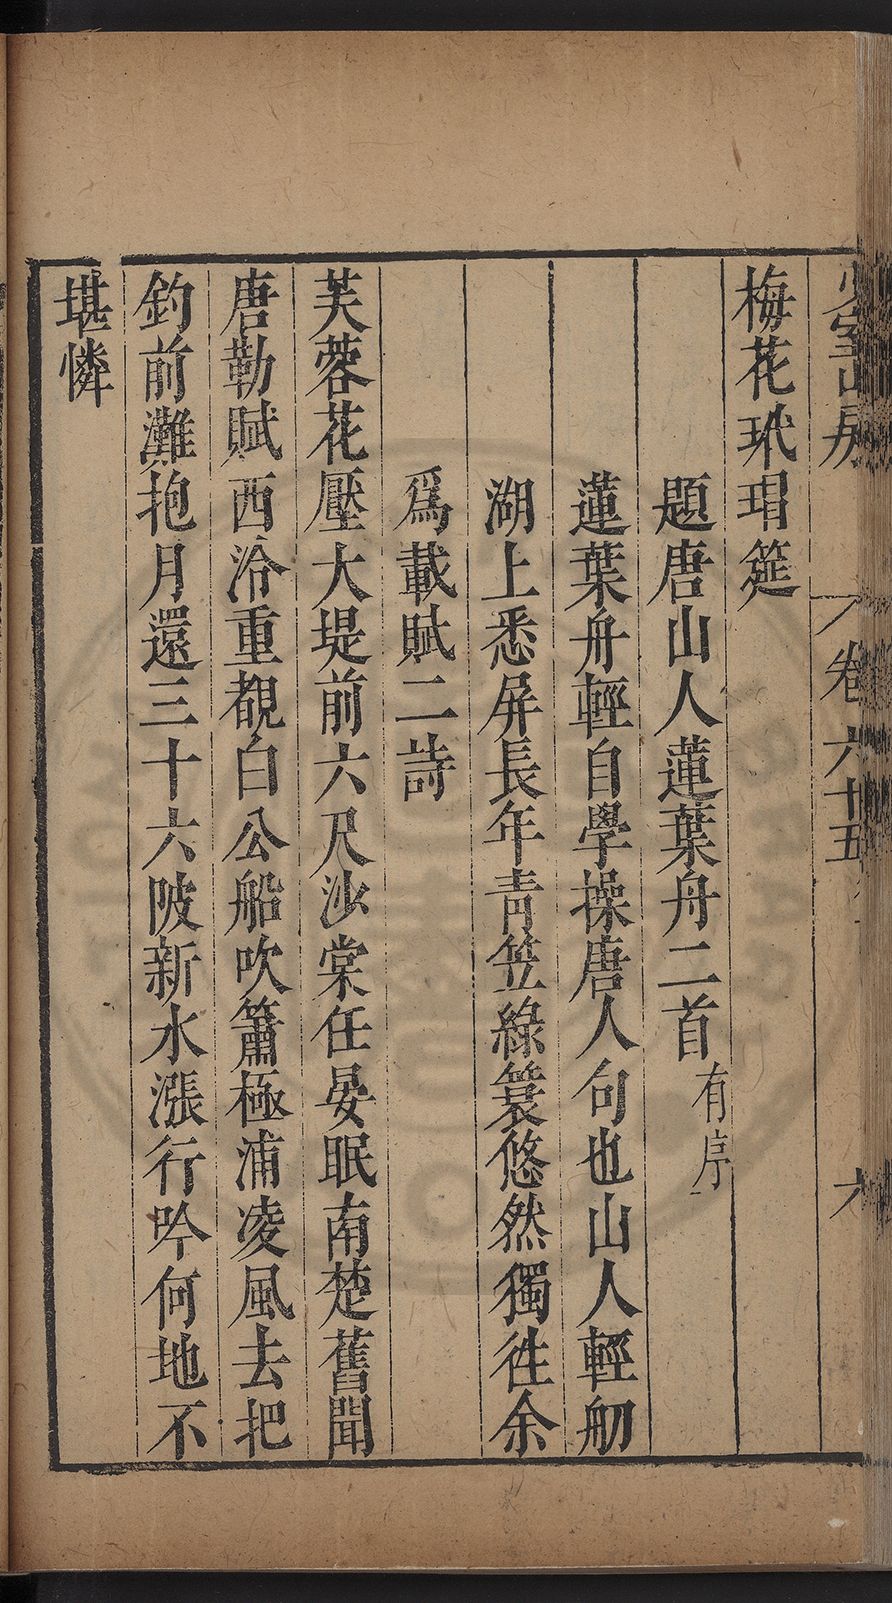 少室山房
卷六十五
六
梅花玳瑁筵
題唐山人蓮葉舟二首有序
蓮葉舟輕自學操唐人句也山人輕舠
湖上悉屏長年青笠綠簑悠然獨徃余
爲載賦二詩
芙蓉花壓大堤前六尺沙棠任晏眠南楚舊聞
唐勒賦西泠重覩白公船吹簫極浦凌風去把
釣前灘抱月還三十六陂新水漲行吟何地不
堪憐